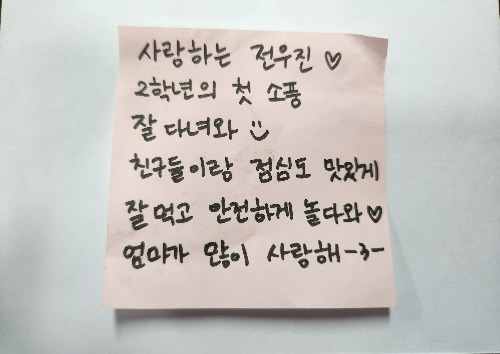 사랑하는 전우진♡
2학년의 첫 소풍
잘 다녀와 :)
친구들이랑 점심도 맛있게
잘 먹고 안전하게 놀다와♡
엄마가 많이 사랑해-3-